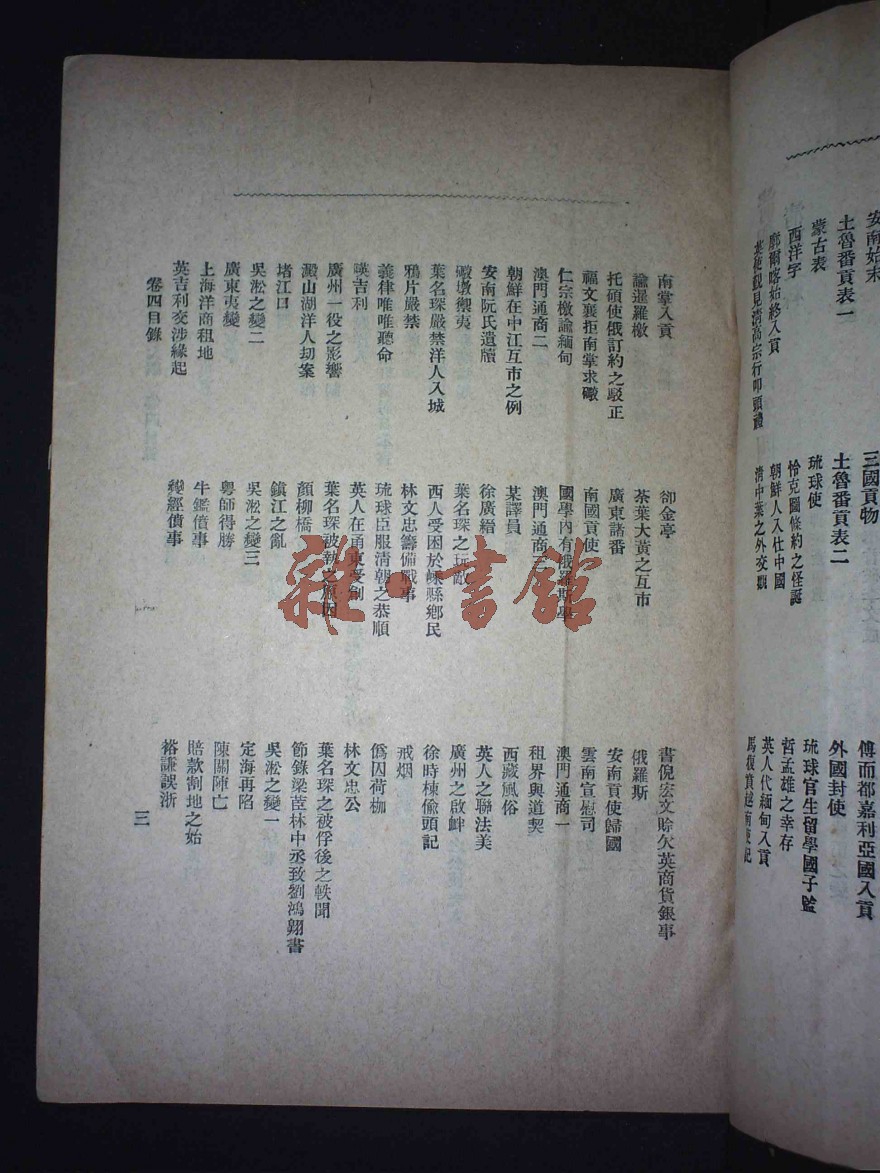 安南始末 三國貢物 傅而都嘉利亞國入貢
土魯番貢表一 土魯番貢表二 外國封使
蒙古表 琉球使 琉球官生留學國子監
西洋字 恰克圖條約之怪誕 哲孟雄之幸存
廓爾喀始終入貢 朝鮮人入仕中國 英人代緬甸入貢
英使覲見清高宗行叩頭禮 清中葉之外交觀 馬復賁越南使記
南掌入貢 卻金亭 書倪宏文賒欠英商貨銀事
諭暹羅檄 茶葉大黃之互市 俄羅斯
托碩使俄訂約之駁正 廣東諸番 安南貢使歸國
福文襄拒南掌求礮 南國貢使 雲南宣慰司
仁宗檄諭緬甸 國學內有俄羅斯學 澳門通商一
澳門通商二 澳門通商三 租界與道契
朝鮮在中江互市之例 某譯員 西藏風俗
安南阮氏遺牘 徐廣縉 英人之聯法美
礮墩禦夷 葉名琛之玩敵 廣州之啟衅
葉名琛嚴禁洋人入城 西人受困於嵊縣鄉民 徐時棟偷頭記
鴉片嚴禁 林文忠籌備戰事 戒烟
義律唯唯聽命 琉球臣服清朝之恭順 僞囚荷枷
㗲吉利 英人在甬東受創 林文忠公
廣州一役之影響 葉名琛被執之原因 葉名琛之被俘後之軼聞
澱山湖洋人刧案 顏柳橋 節錄梁茝林中丞致劉鴻翱書
堵江口 鎮江之亂 吳淞之變一
吳淞之變二 吳淞之變三 定海再陷
廣東夷變 粵師得勝 陳關陣亡
上海洋商租地 牛鑑僨事 賠款割地之始
英吉利交涉緣起 奕經僨事 裕謙誤浙
卷四目錄 三
雜·書館